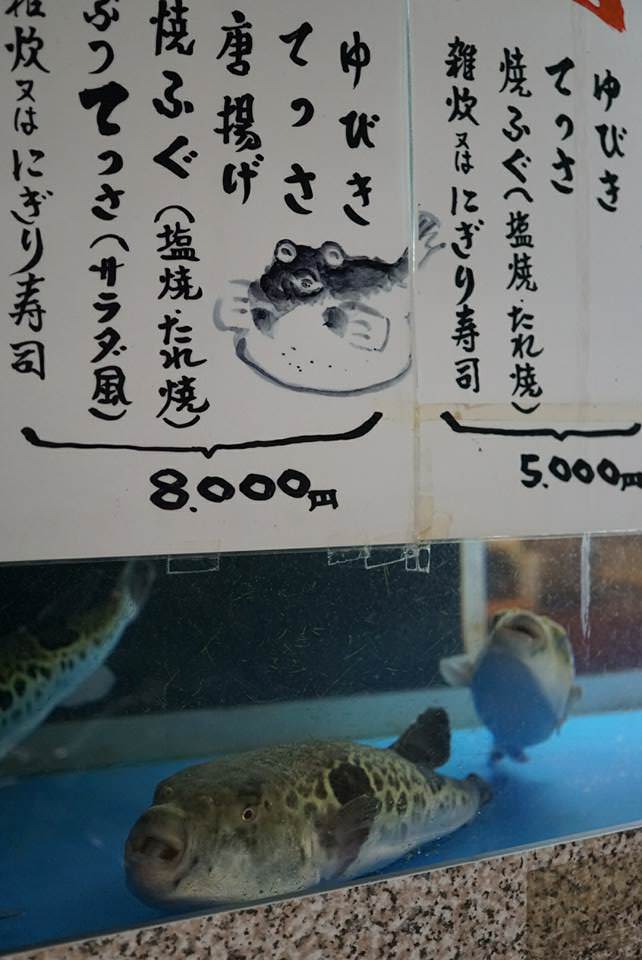 ゆびき
てっさ
焼ふぐ(塩焼・たれ焼)
雑炊又はにぎり寿司
5.000円
ゆびき
てっさ
唐揚げ
焼ふぐ(塩焼・たれ焼)
ぶつてっさ(サラダ風)
雑炊又はにぎり寿司
8.000円